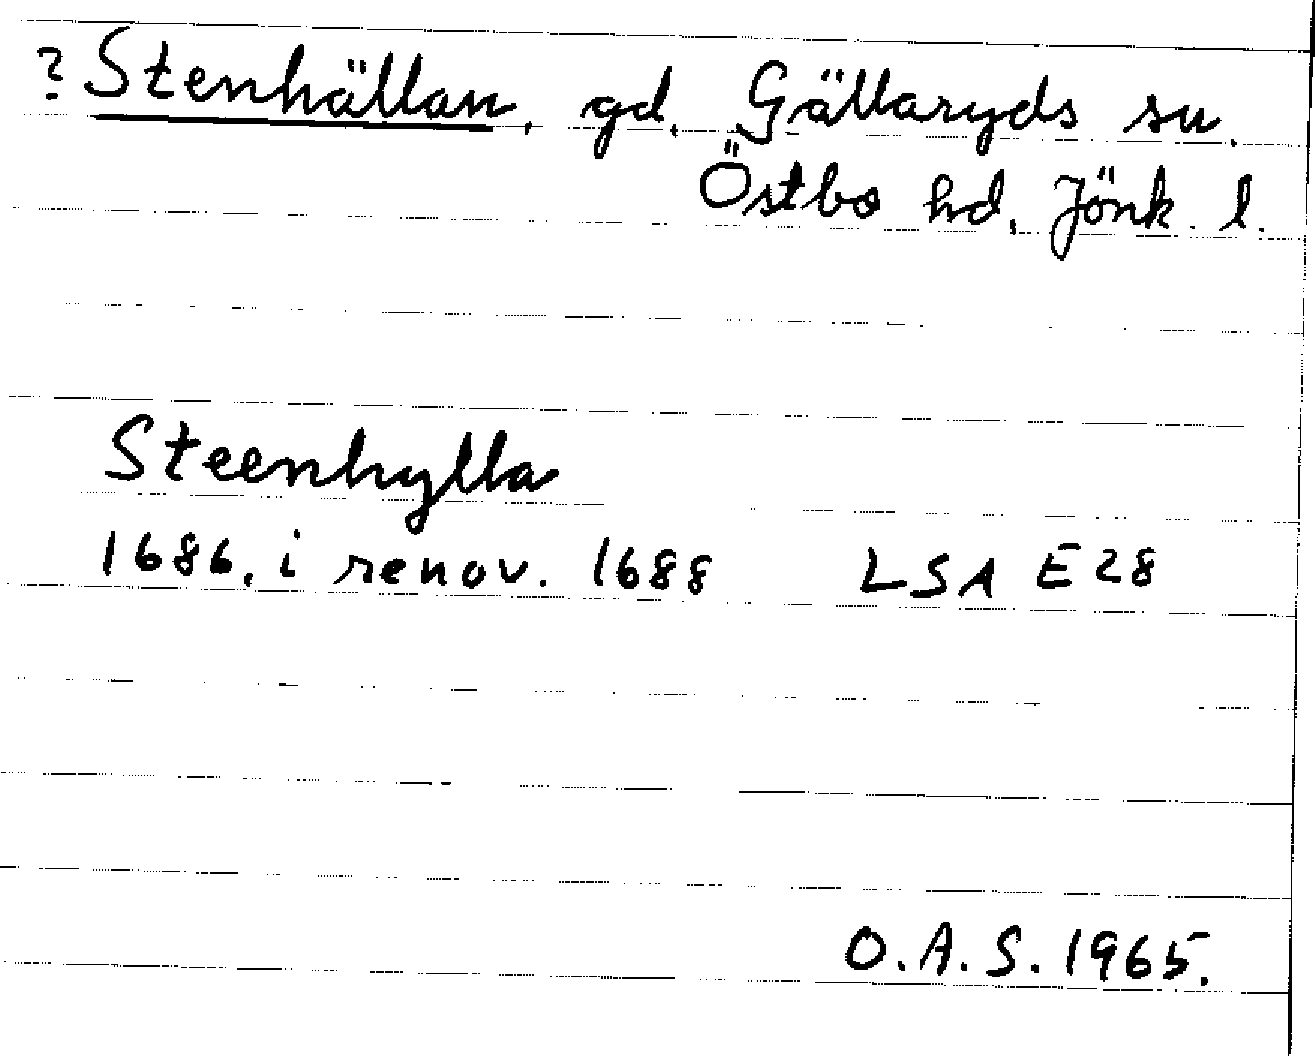 ? Stenhällan, gd, Gällaryds sn.
Östbo hd, Jönk. l.
Steenhylla
1686, i renov. 1688 LSA E28
O.A.S. 1965.